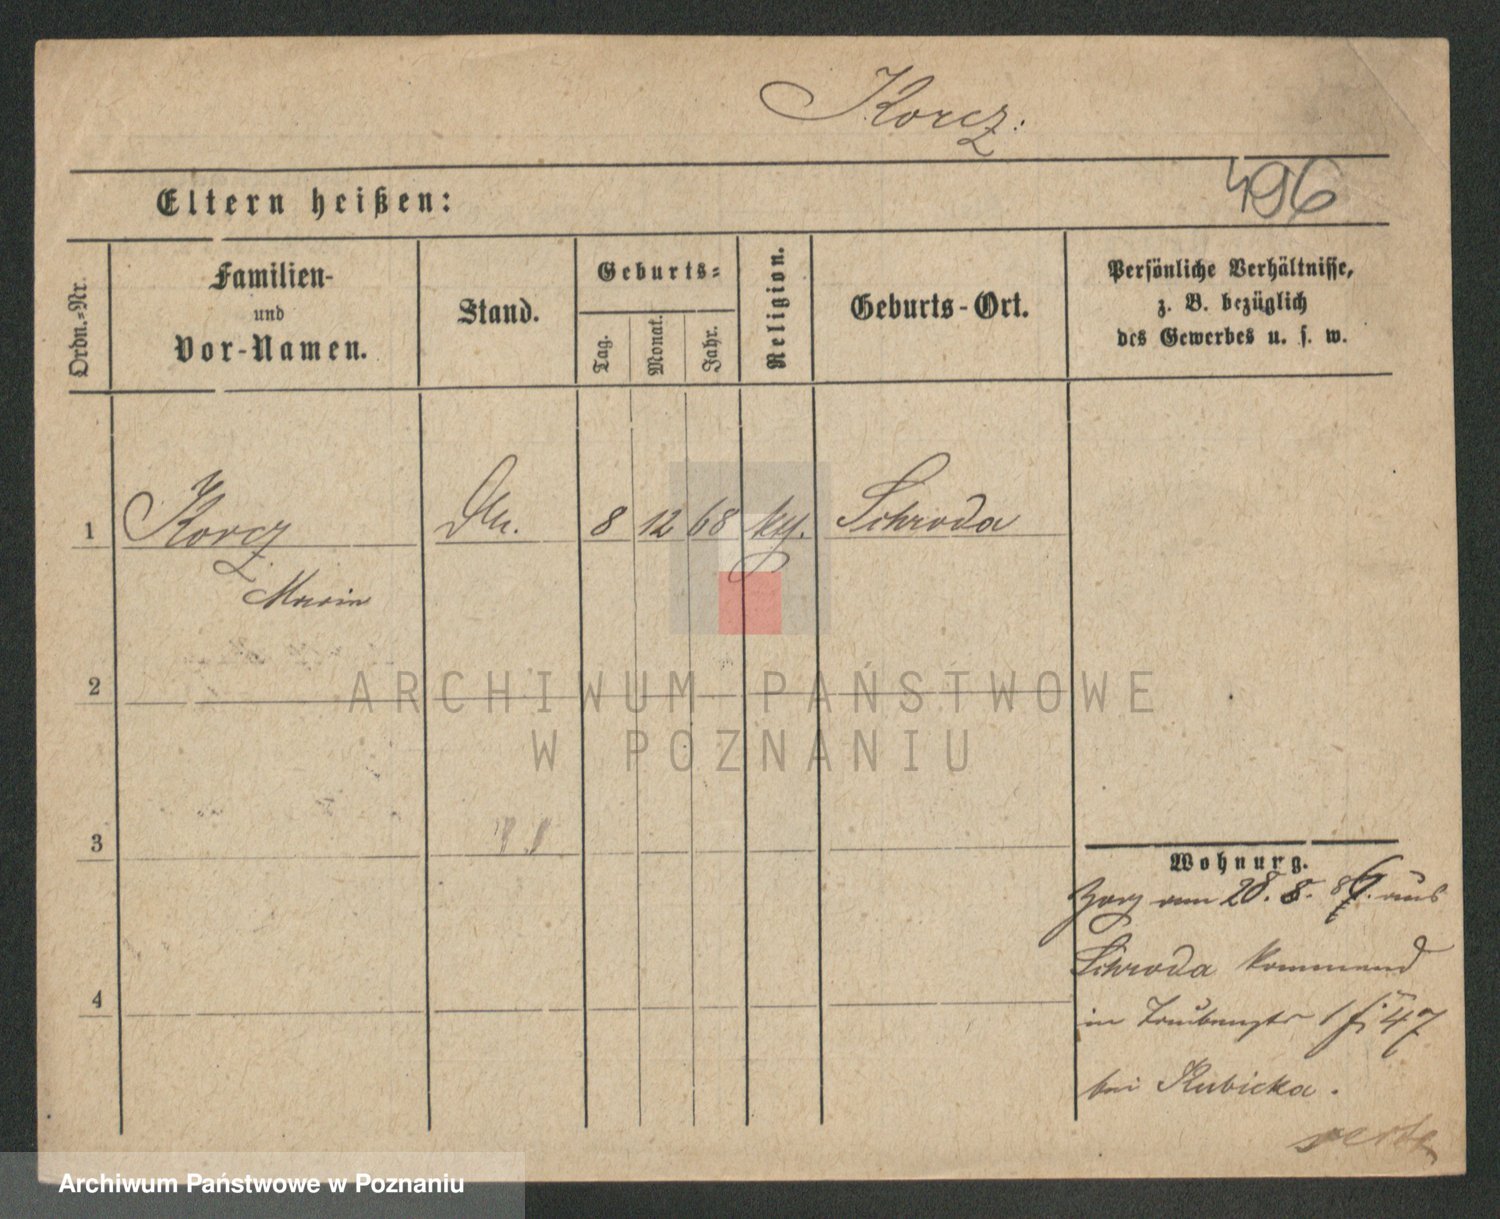 Korcz.
496
Eltern heißen:
Ordn.-Nr.
Familien-
und
Vor-Namen.
Stand.
Geburts-
Tag.
Monat.
Jahr.
Religion.
Geburts-Ort.
Persönliche Verhältnisse,
z. B. bezüglich
des Gewerbes u. s. w.
1 Korcz 8 12 68 Schroda
Marie
2
ARCHIWUM PAŃSTWOWE
W POZNANIU
3
Wohnung.
Zorg am 28. 8. aus
4
Schroda kommend
in 47
bei Kubicka.
verte
Archiwum Państwowe w Poznaniu